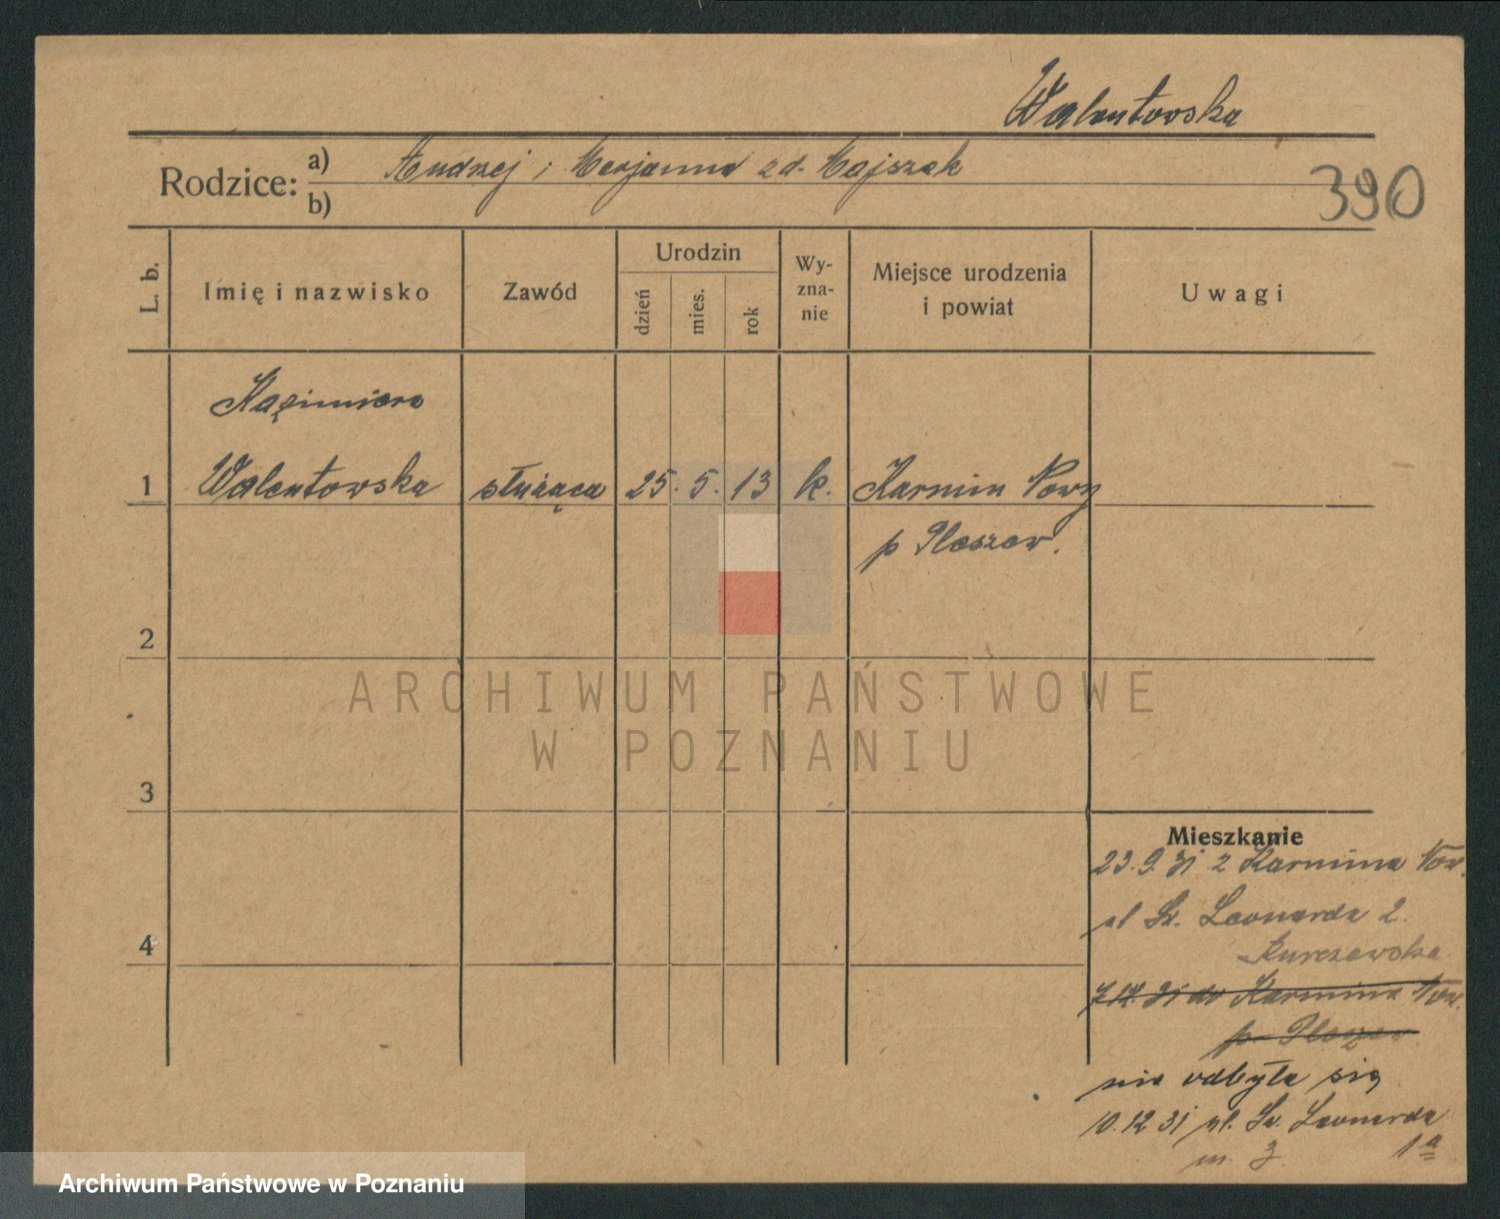 Walentowska
Rodzice: a) Andrzej i Marjanna zd. Majszak
b)
390
L. b.
Imię i nazwisko
Zawód
Urodzin
dzień
mies.
rok
Wy-
zna-
nie
Miejsce urodzenia
i powiat
Uwagi
Kazimiera
1 Walentowska służąca 25. 5. 13 k. Karmin Nowy
p Pleszew.
2
3
4
ARCHIWUM PAŃSTWOWE
W POZNANIU
Mieszkanie
23.9.31 z Karmina Now.
pl Św. Leonarda 2.
Kurczewska
7.12.31 do Karmina Now.
p. Pleszew.
nie odbyła się
10.12 31 pl. Św. Leonarda
1a
m. 3
Archiwum Państwowe w Poznaniu